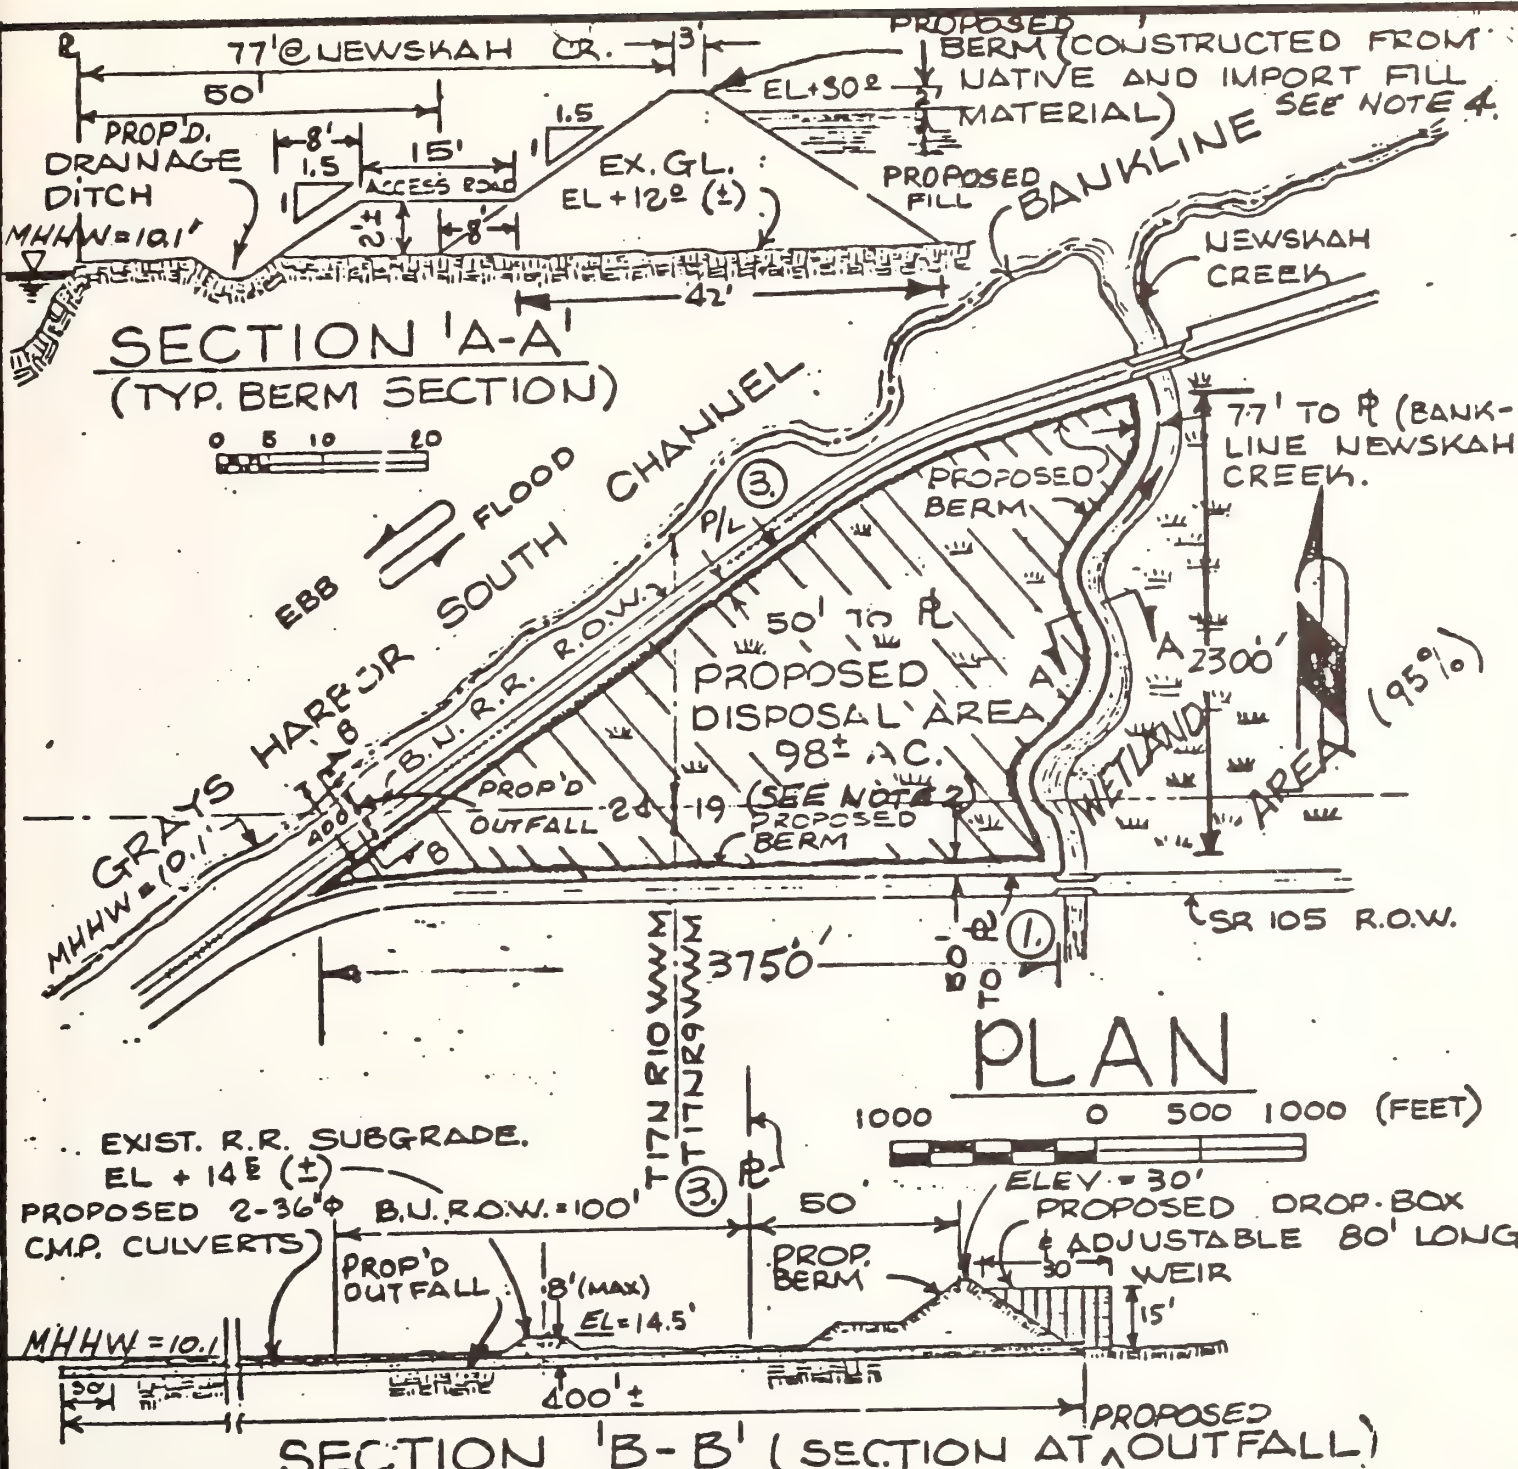 PROPOSED
77' @ NEWSKAH CR.
3'
BERM (CONSTRUCTED FROM
NATIVE AND IMPORT FILL
MATERIAL) SEE NOTE 4.
50'
EL+30º
2'
PROP'D.
DRAINAGE
DITCH
8'
1.5
1
15'
ACCESS ROAD
1.5
1
EX. GL.
EL+12º (±)
PROPOSED
FILL
BANKLINE
MHHW=10.1'
8'
42'
NEWSKAH
CREEK
SECTION 'A-A'
(TYP. BERM SECTION)
0 5 10 20
77' TO ⅊ (BANK-
LINE NEWSKAH
CREEK.
EBB
FLOOD
GRAYS HARBOR SOUTH CHANNEL
3.
P/L
PROPOSED
BERM
B.N. R.R. R.O.W.
50' TO ⅊
PROPOSED
DISPOSAL AREA
98± AC.
(SEE NOTE 2)
A
A
2300'
WETLAND AREA (95%)
B
400'
PROP'D
OUTFALL
24
19
PROPOSED
BERM
B
MHHW=10.1'
SR 105 R.O.W.
1.
50' TO ⅊
3750'
T17N R10WWM
T17N R9WWM
PLAN
1000 0 500 1000 (FEET)
3.
⅊
EXIST. R.R. SUBGRADE.
EL + 14⁵ (±)
PROPOSED 2-36"φ
C.M.P. CULVERTS
B.N. R.O.W. = 100'
50'
ELEV. = 30'
PROPOSED DROP-BOX
& ADJUSTABLE 80' LONG
WEIR
PROP'D
OUTFALL
8' (MAX)
EL=14.5'
PROP.
BERM
30'
15'
MHHW=10.1
30'
400'±
SECTION 'B-B' (SECTION AT PROPOSED OUTFALL)